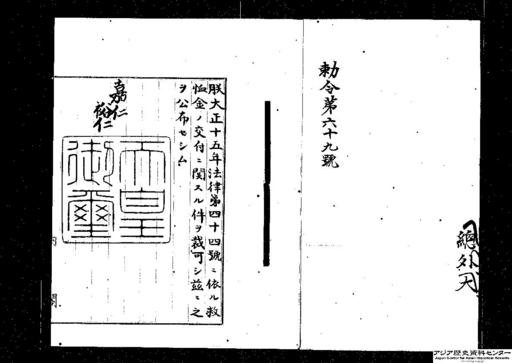 勅令第六十九號
朕大正十五年法律第四十四號ニ依ル救
恤金ノ交付ニ関スル件ヲ裁可シ茲ニ之
ヲ公布セシム
嘉仁
裕仁
天皇
御璽
内閣
アジア歴史資料センター
Japan Center for Asian Historical Records